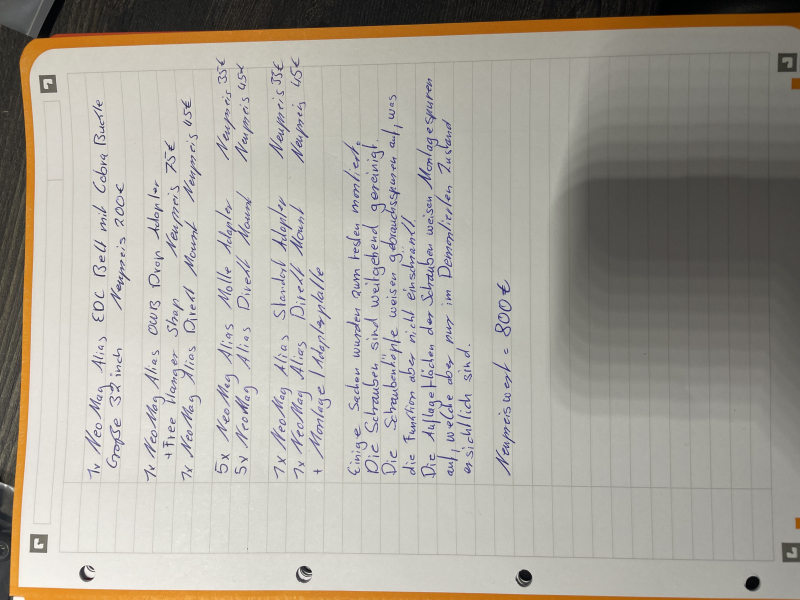 1x NeoMag Alias EDC Belt mit Cobra Buckle
Größe 32 inch Neupreis 200€
1x NeoMag Alias OWB Drop Adapter
+ Free Hanger Strap Neupreis 75€
1x NeoMag Alias Direkt Mount Neupreis 45€
5x NeoMag Alias Molle Adapter Neupreis 35€
5x NeoMag Alias Direkt Mount Neupreis 45€
1x NeoMag Alias Standart Adapter Neupreis 35€
1x NeoMag Alias Direkt Mount Neupreis 45€
+ Montage / Adapterplatte
Einige Sachen wurden zum testen montiert.
Die Schrauben sind weitgehend gereinigt.
Die Schraubenköpfe weisen gebrauchsspuren auf, was
die Funktion aber nicht einschränkt.
Die Auflageflächen der Schrauben weisen Montagespuren
auf, welche aber nur im Demontierten Zustand
ersichtlich sind.
Neupreiswert = 800€